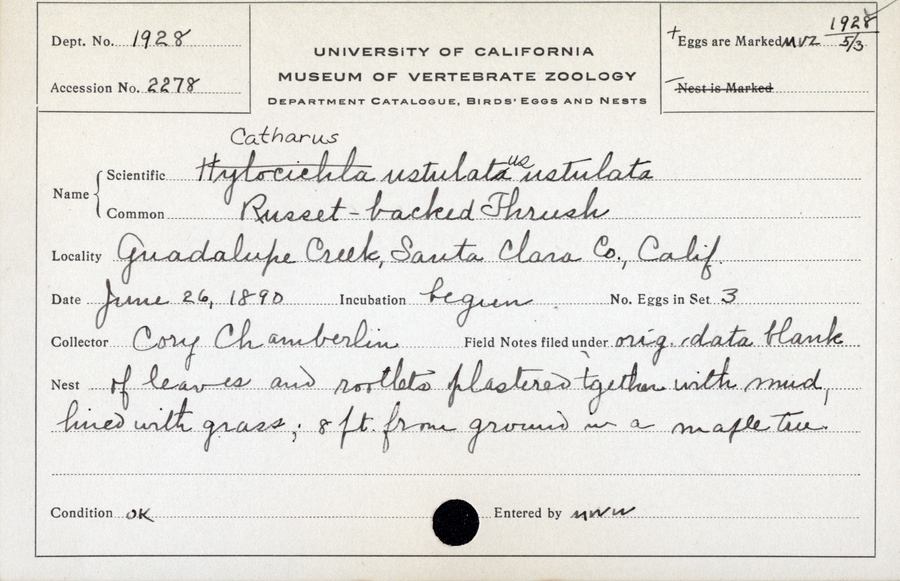 Dept. No. 1928
Accession No. 2278
UNIVERSITY OF CALIFORNIA
MUSEUM OF VERTEBRATE ZOOLOGY
DEPARTMENT CATALOGUE, BIRDS' EGGS AND NESTS
+Eggs are Marked MVZ 1928 5/3
Nest is Marked
Catharus
Name Scientific Hylocichla ustulata us ustulata
Common Russet-backed Thrush
Locality Guadalupe Creek, Santa Clara Co., Calif.
Date June 26, 1890 Incubation begun No. Eggs in Set 3
Collector Cory Chamberlin Field Notes filed under orig. data blank
Nest of leaves and rootlets plastered tgether with mud,
lined with grass; 8 ft. from ground in a maple tree.
Condition OK Entered by MWW